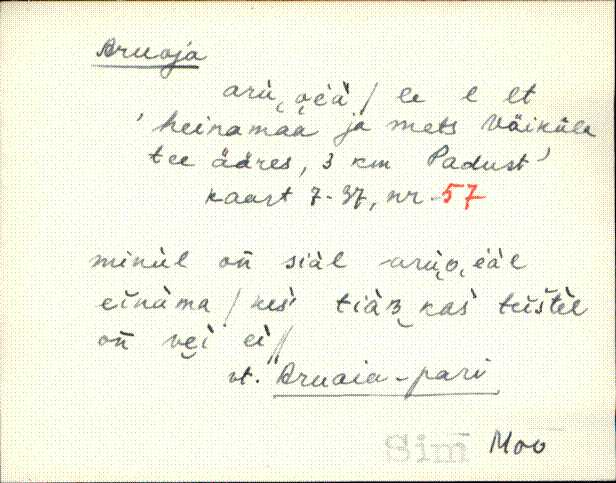 Aruoja
arù͔ o̭èä̀ / le l lt
'heinamaa ja mets Väiküla
tee ääres, 3 km Padust'
kaart 7-37, nr-57
minùl on̄ siàl arù͔o̭èäl
eìnàma / kes̀ tiàB̬ kas̀ teìstèl
on̄ vè̬i ei //
vt. Aruaia-pari
Sim Moo